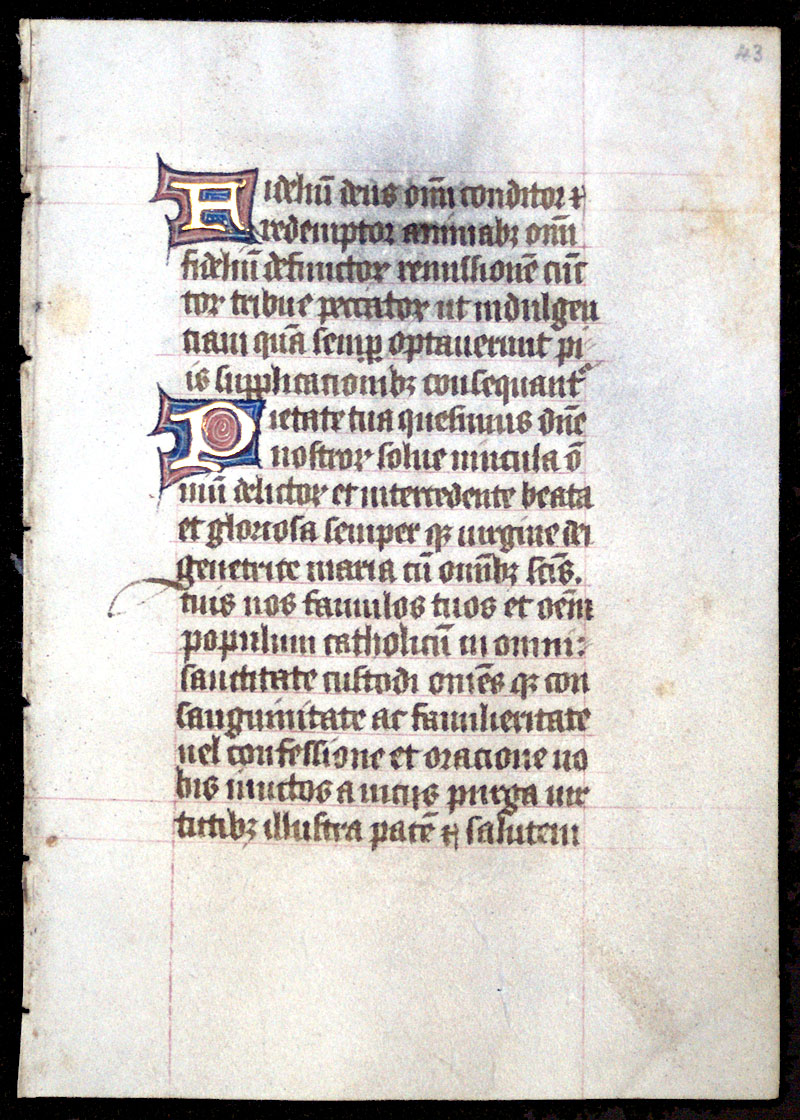 43
Fideliū deus om̄i conditor ⁊
redemptor animabꝫ om̄i
fideliū defunctoꝝ remissionē cūc
toꝝ tribue peccatoꝝ ut indulgen
tiam quā semꝑ optauerunt pi
is supplicationibꝫ consequant᷑
Pietate tua quesumus dn̄e
nostroꝝ solue uincula ō
niū delictoꝝ et intercedente beata
et gloriosa semper qꝫ uirgine dei
genetrice maria cū om̄ibꝫ sc̄is.
tuis nos famulos tuos et oēm
populum catholicū in omni
sanctitate custodi omēs qꝫ con
sanguinitate ac familieritate
uel confessione et oracione no
bis iunctos a uicijs purga uir
tutibꝫ illustra pacē ⁊ salutem